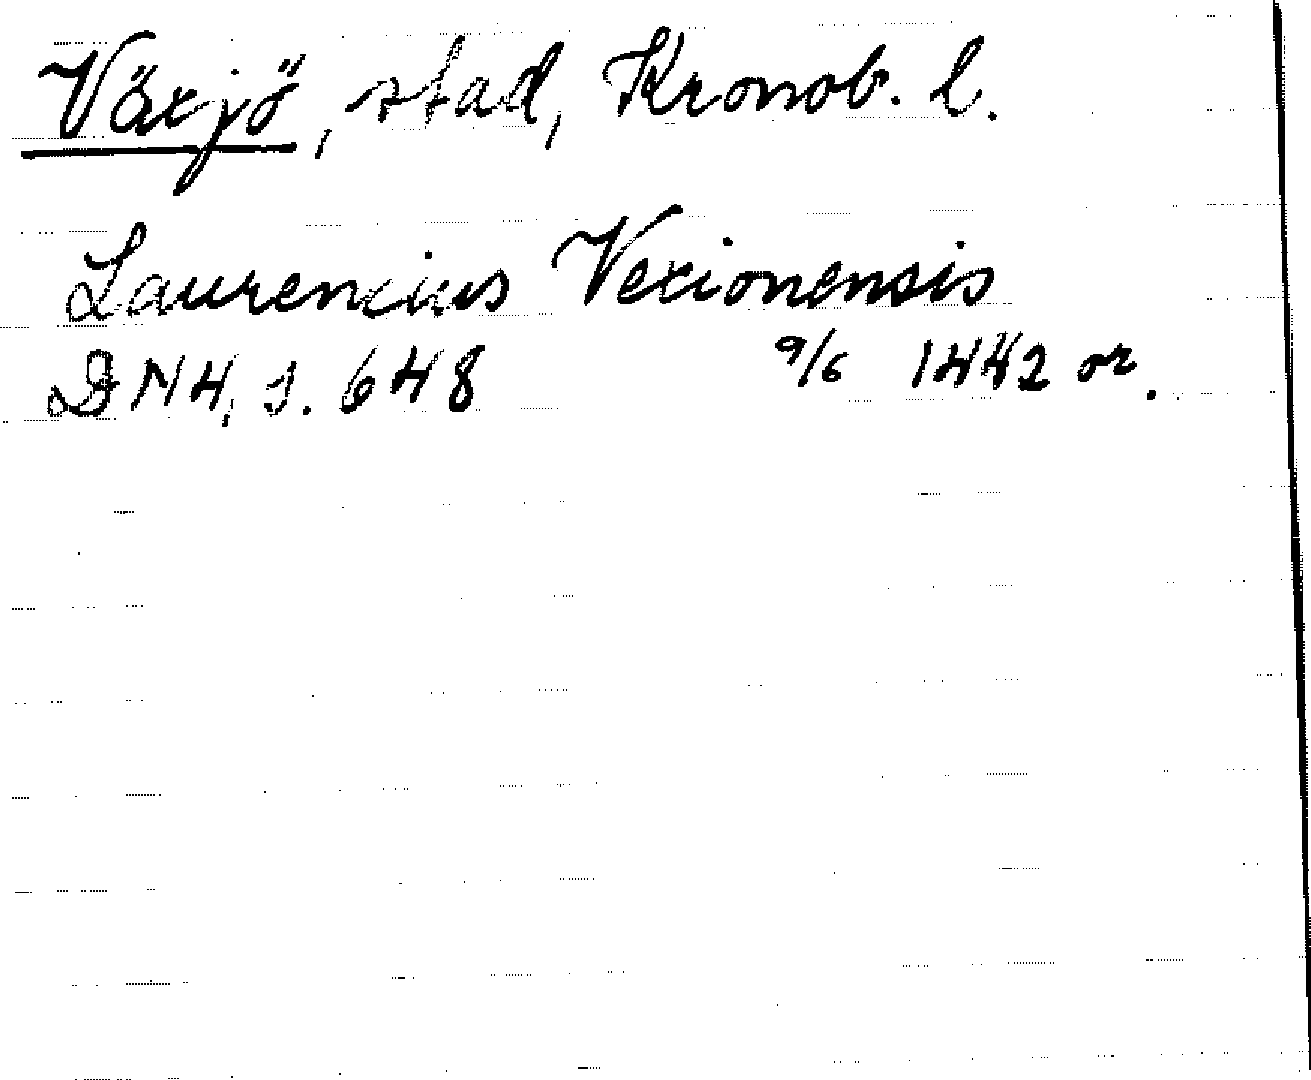 Växjö, stad, Kronob. l.
Laurencius Vexionensis
DN4, s. 648 9/6 1442 or.